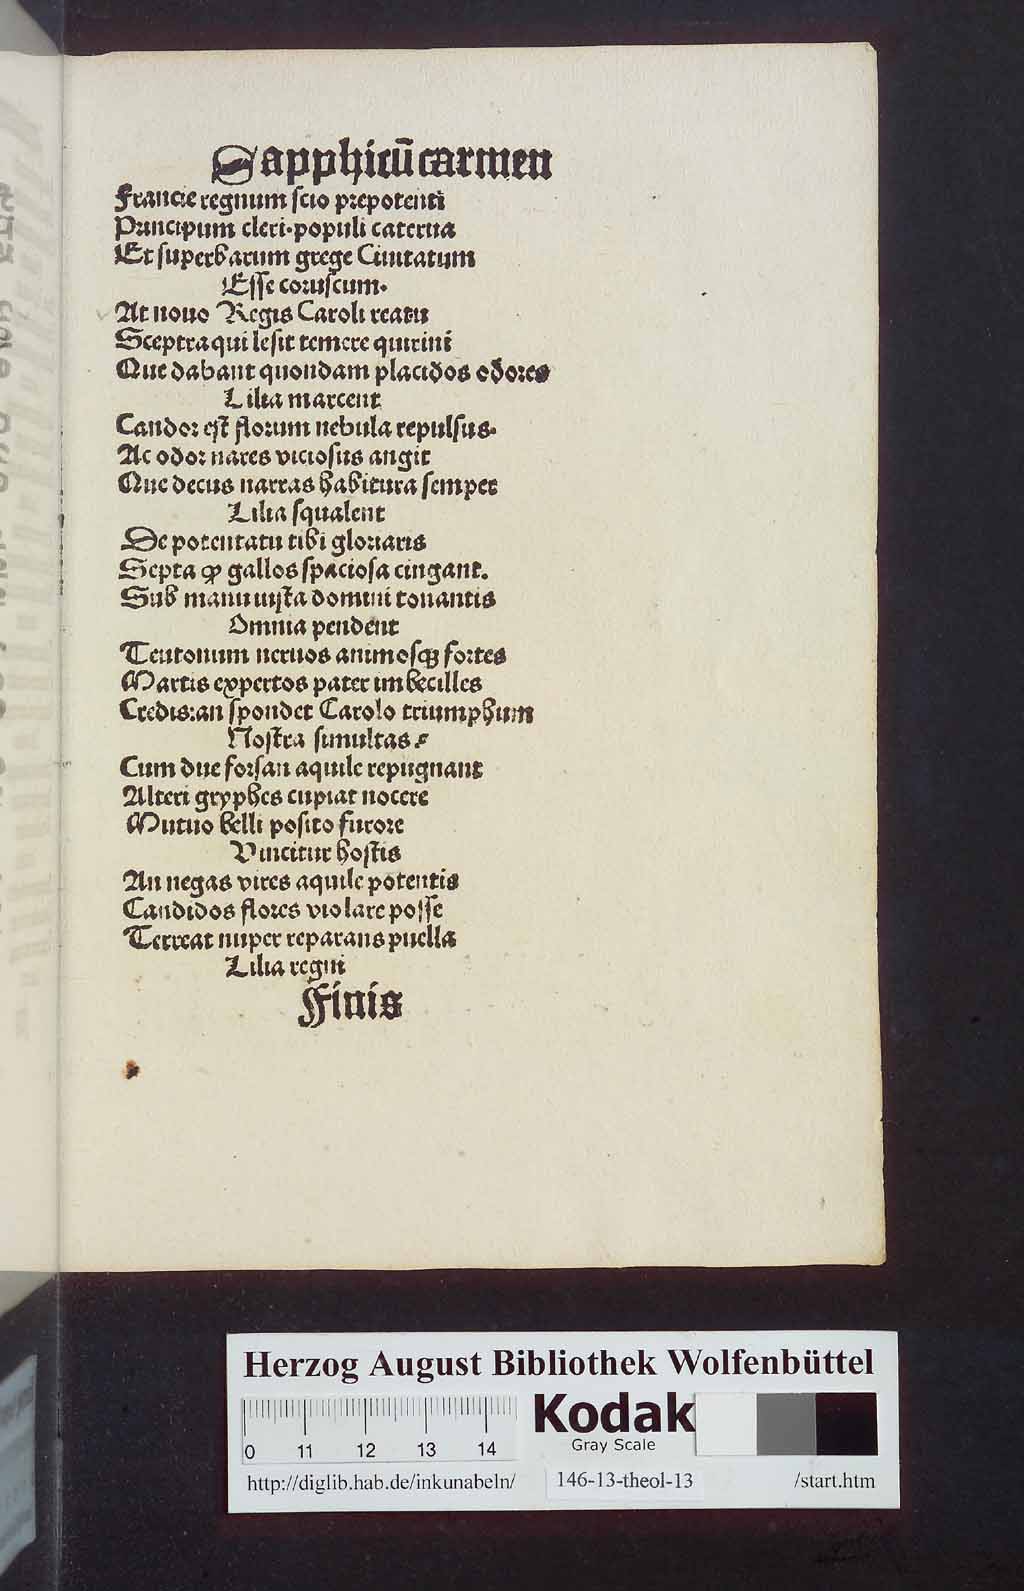 Sapphicū carmen
Francie regnum scio prepotenti
Principum cleri·populi caterua
Et superbarum grege Ciuitatum
Esse coruscum·
At nouo Regis Caroli reatu
Sceptra qui lesit temere quirini
Que dabant quondam placidos odores
Lilia marcent
Candor est florum nebula repulsus·
Ac odor nares viciosus angit
Que decus narras habitura semper
Lilia squalent
De potentatu tibi gloriaris
Septa ꝙ gallos spaciosa cingant.
Sub manu iusta domini tonantis
Omnia pendent
Teutonum neruos animosqꝫ fortes
Martis expertos pater imbecilles
Credis:an spondet Carolo triumphum
Nostra simultas
Cum due forsan aquile repugnant
Alteri gryphes cupiat nocere
Mutuo belli posito furore
Vincitur hostis
An negas vires aquile potentis
Candidos flores violare posse
Terreat nuper reparans puella
Lilia regni
Finis
Herzog August Bibliothek Wolfenbüttel
0 11 12 13 14
Kodak
Gray Scale
http://diglib.hab.de/inkunabeln/ 146-13-theol-13 /start.htm